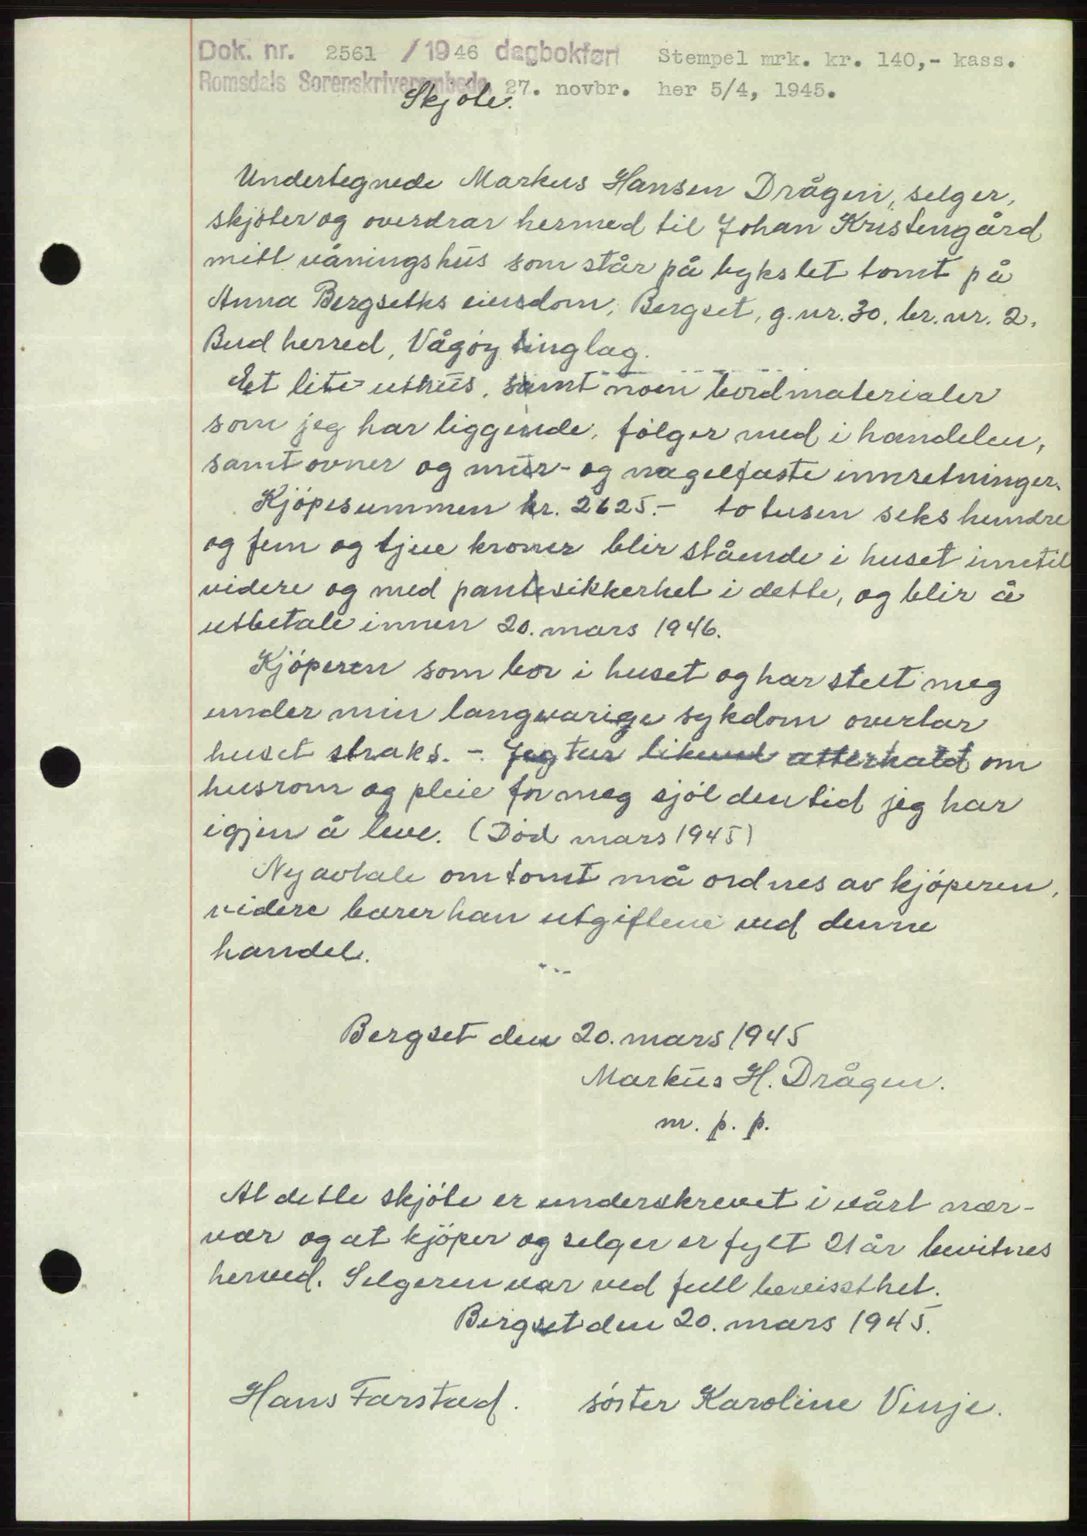 Dok. nr. 2561 /1946 dagbokført Stempel mrk. kr. 140,- kass.
Romsdals Sorenskriverembede 27. novbr. her 5/4, 1945.
Skjøte.
Undertegnede Markus Hansen Drågen, selger,
skjøter og overdrar hermed til Johan Kristengård
mitt våningshus som står på bykslet tomt på
Anna Bergseths eiendom, Bergset, g.nr. 30, br. nr. 2.
Bud herred, Vågøy tinglag.
Et lite uthus, samt noen bordmaterialer
som jeg har liggende, følger med i handelen,
samt ovner og mur- og nagelfaste innretninger.
Kjöpesummen kr. 2625.- to tusen seks hundre
og fem og tjue kroner blir stående i huset inntil
videre og med pantesikkerhet i dette, og blir å
utbetale innen 20. mars 1946.
Kjöperen som bor i huset og har stelt meg
under min langvarige sykdom overtar
huset straks. - Jeg tar likevel atterhald om
husrom og pleie for meg sjöl den tid jeg har
igjen å leve. (Död mars 1945)
Ny avtale om tomt må ordnes av kjöperen,
videre bærer han utgiftene ved denne
handel.
Bergset den 20. mars 1945
Markus H. Drågen.
m. p. p.
At dette skjöte er underskrevet i vårt nær-
vær og at kjöper og selger er fylt 21 år bevitnes
herved. Selgeren var ved full bevissthet.
Bergset den 20. mars 1945.
Hans Farstad. söster Karoline Vinje.